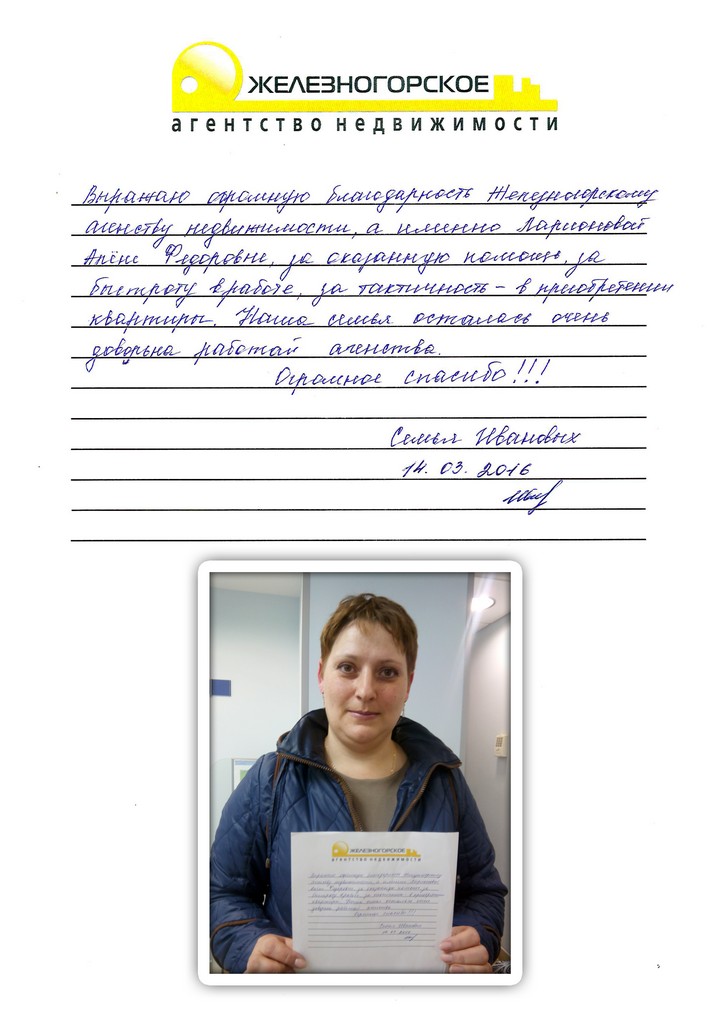 ЖЕЛЕЗНОГОРСКОЕ
агентство недвижимости
Выражаю огромную благодарность Железногорскому
агенству недвижимости, а именно Ларионовой
Алёне Федоровне, за оказанную помощь, за
быстроту в работе, за тактичность - в приобретении
квартиры. Наша семья осталась очень
довольна работай агенства.
Огромное спасибо!!!
Семья Ивановых
14.03.2016
ЖЕЛЕЗНОГОРСКОЕ
агентство недвижимости